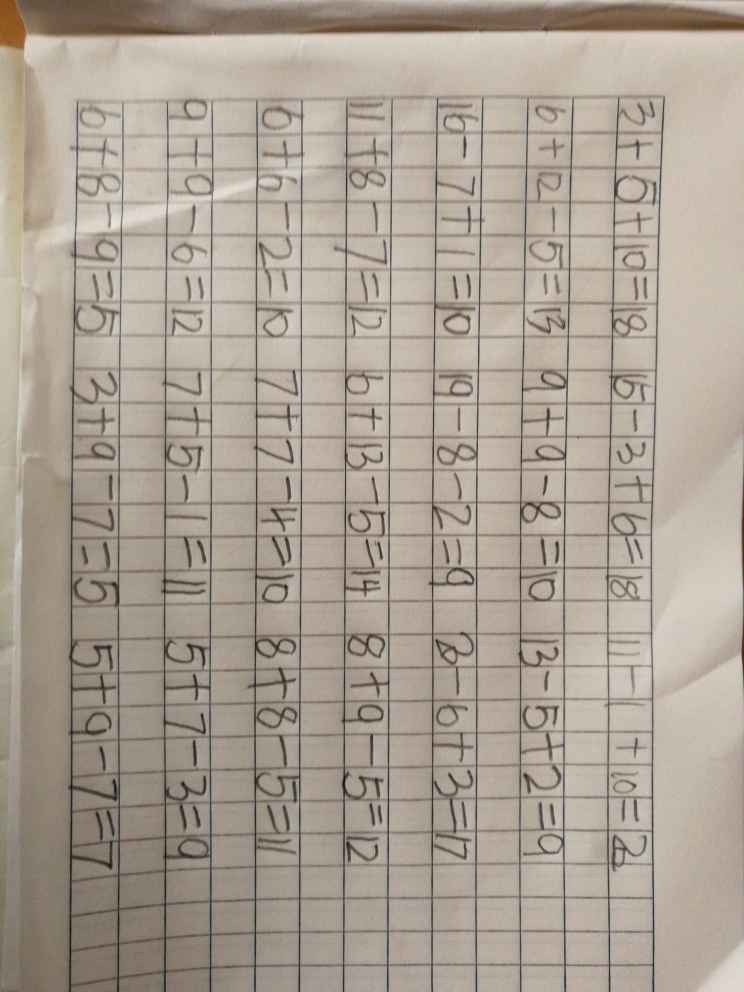 3+5+10=18 15-3+6=18 11-1+10=20
6+12-5=13 9+9-8=10 13-5+2=9
16-7+1=10 19-8-2=9 20-6+3=17
11+8-7=12 6+13-5=14 8+9-5=12
6+6-2=10 7+7-4=10 8+8-5=11
9+9-6=12 7+5-1=11 5+7-3=9
6+8-9=5 3+9-7=5 5+9-7=7